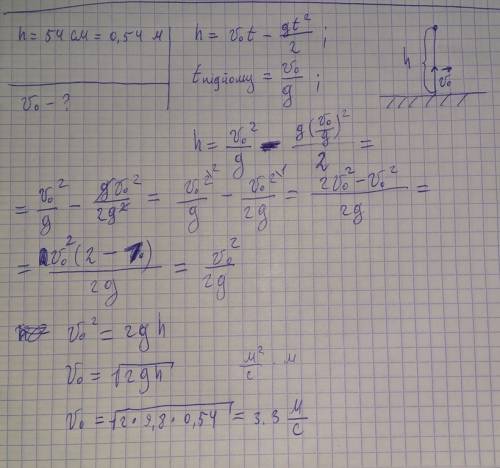 h = 54 см = 0,54 м
v₀ - ?
h = v₀t - gt²/2 ;
tпідйому = v₀/g ;
h
v₀
h = v₀²/g - g(v₀/g)²/2 =
= v₀²/g - gv₀²/2g² = v₀²\²/g - v₀²\¹/2g = 2v₀² - v₀²/2g =
= v₀²(2 - 1)/2g = v₀²/2g
v₀² = 2gh
v₀ = √2gh
м²/с · м
v₀ = √2 · 9,8 · 0,54 = 3.3 м/с